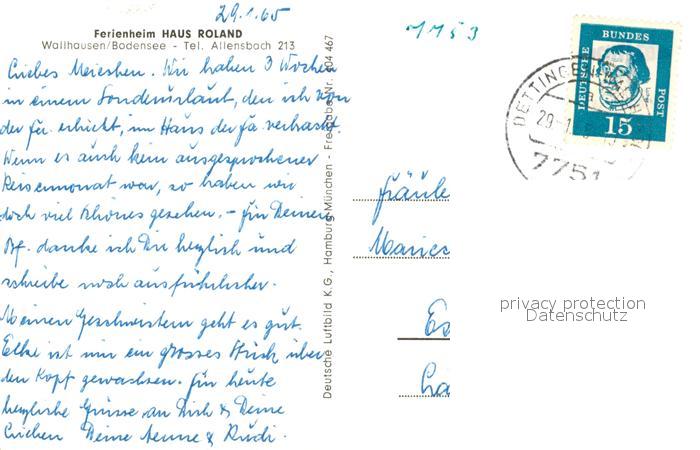 29.1.65
1153
Ferienheim HAUS ROLAND
Wallhausen/Bodensee - Tel. Allensbach 213
Liebes Mariechen. Wir haben 3 Wochen
in einem Sonderurlaub, den ich von
der Fa. erhielt, im Haus der Fa. verbracht.
Wenn es auch kein ausgesprochener
Reisemonat war, so haben wir
doch viel schönes gesehen. - Für Deinen
Bf. danke ich Dir herzlich und
schreibe noch ausführlicher.
Meinen Geschwistern geht es gut.
Elke ist mir ein grosses Stück über
den Kopf gewachsen. Für heute
herzliche Grüsse an Dich & Deine
Lieben Deine Aenne & Rudi.
Deutsche Luftbild K.G., Hamburg/München - Freigabe Nr. 604 467
DEUTSCHE BUNDES POST
15
DETTINGEN
29-1
7751
Fräule
Maries
Es
privacy protection
Datenschutz